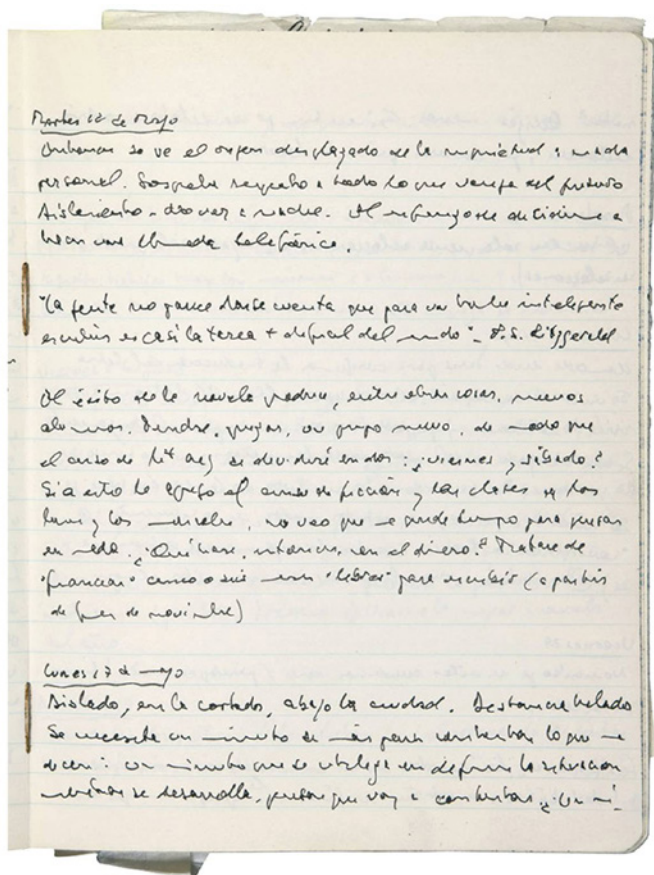 Martes 12 de Mayo
se ve el origen desplazado de la inquietud: nada
personal. Sospecha respecto a todo lo que venga del pasado
Aislamiento - no ver a nadie. Al decidirme a
hacer una llamada telefónica.
"La gente no parece darse cuenta que para un hombre inteligente
escribir es casi la tarea + difícil del mundo". S. Fitzgerald
El éxito de la novela produce, entre otras cosas, nuevos
alumnos. Tendré, quizás, un grupo nuevo, de modo que
el curso de lit arg se dividirá en dos: ¿viernes y sábado?
Si a esto le agrego el curso de ficción y las clases de los
lunes y los miércoles, no veo que me quede tiempo para pensar
en nada. ¿Qué hacer, entonces, con el dinero? Trataré de
"financiar" cinco o seis meses "libres" para escribir (a partir
de fines de noviembre)
Lunes 17 de mayo
Aislado, en la cortada, abajo la ciudad. Distancia helada
Se necesita un minuto de más para contestar lo que me
dicen: un minuto que se utiliza en definir la situación
mientras se desarrolla, pensar que voy a contestar. ¿Un mi-